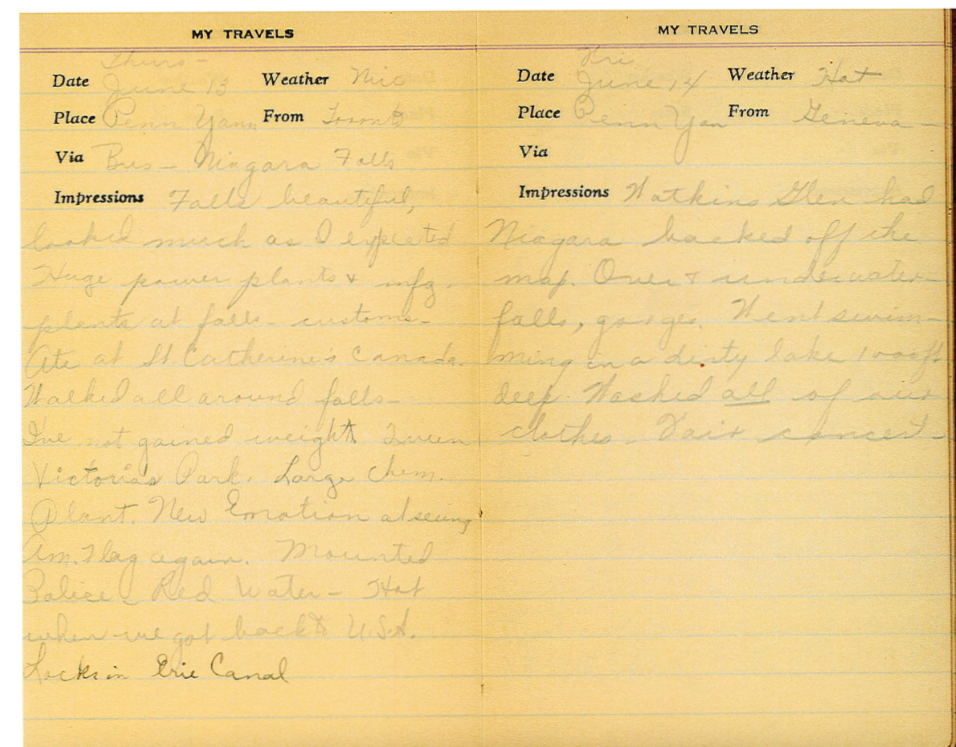 MY TRAVELS
Thurs -
Date June 13 Weather Nice
Place Penn Yann From Toronto
Via Bus - Niagara Falls
Impressions Falls beautiful,
looked much as I expected
Huge power plants & mfg.
plants at falls - customs -
Ate at St. Catherine's Canada.
Walked all around falls -
I've not gained weight Queen
Victoria's Park. Large Chem.
Plant. New Emotion at seeing
Am. Flag again. Mounted
Police - Red Water - Hot
when we got back to U.S.A.
Locks in Erie Canal
MY TRAVELS
Fri
Date June 14 Weather Hot
Place Penn Yan From Geneva -
Via
Impressions Watkins Glen had
Niagara backed off the
map. Over & under water
falls, gorges. Went swim-
ming in a dirty lake 1000 ft.
deep. Washed all of our
clothes. Fair concert -